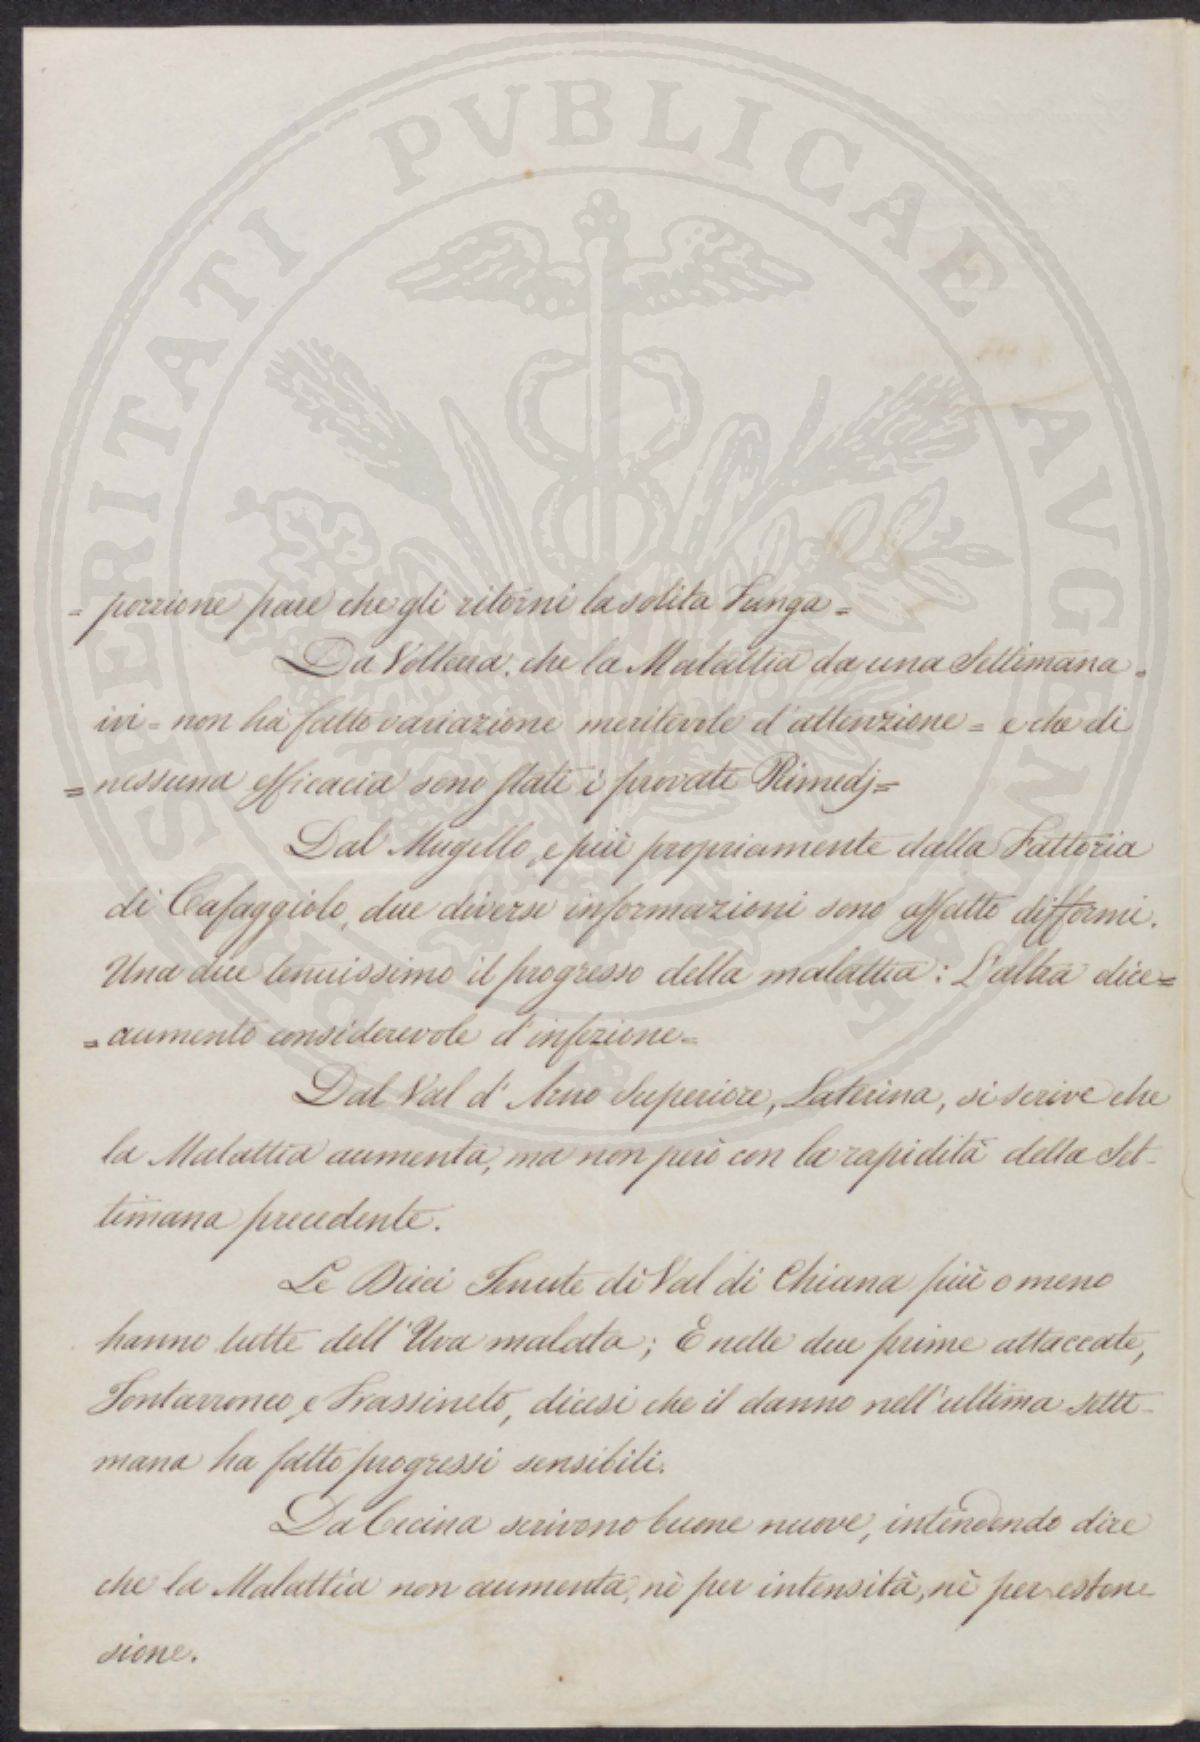 PROSPERITATI PVBLICAE AVGENDAE
= porzione pare che gli ritorni la solita Funga =
Da Volterra, che la Malattia da una Settimana =
ivi = non ha fatto variazione meritevole d'attenzione = e che di
= nessuna efficacia sono stati i provati Rimedj =
Dal Mugello, e più propriamente dalla Fattoria
di Cafaggiolo, due diverse informazioni sono affatto difformi.
Una dice tenuissimo il progresso della malattia: L'altra dice =
= aumento considerevole d'infezione =
Dal Val d'Arno Superiore, Laterina, si scrive che
la Malattia aumenta, ma non però con la rapidità della Set-
timana precedente.
Le Dieci Tenute di Val di Chiana più o meno
hanno tutte dell'Uva malata; E nelle due prime attaccate,
Fontarronco, e Frassineto, dicesi che il danno nell'ultima setti-
mana ha fatto progressi sensibili.
Da Cecina scrivono buone nuove, intendendo dire
che la Malattia non aumenta, nè per intensità, nè per esten-
sione.